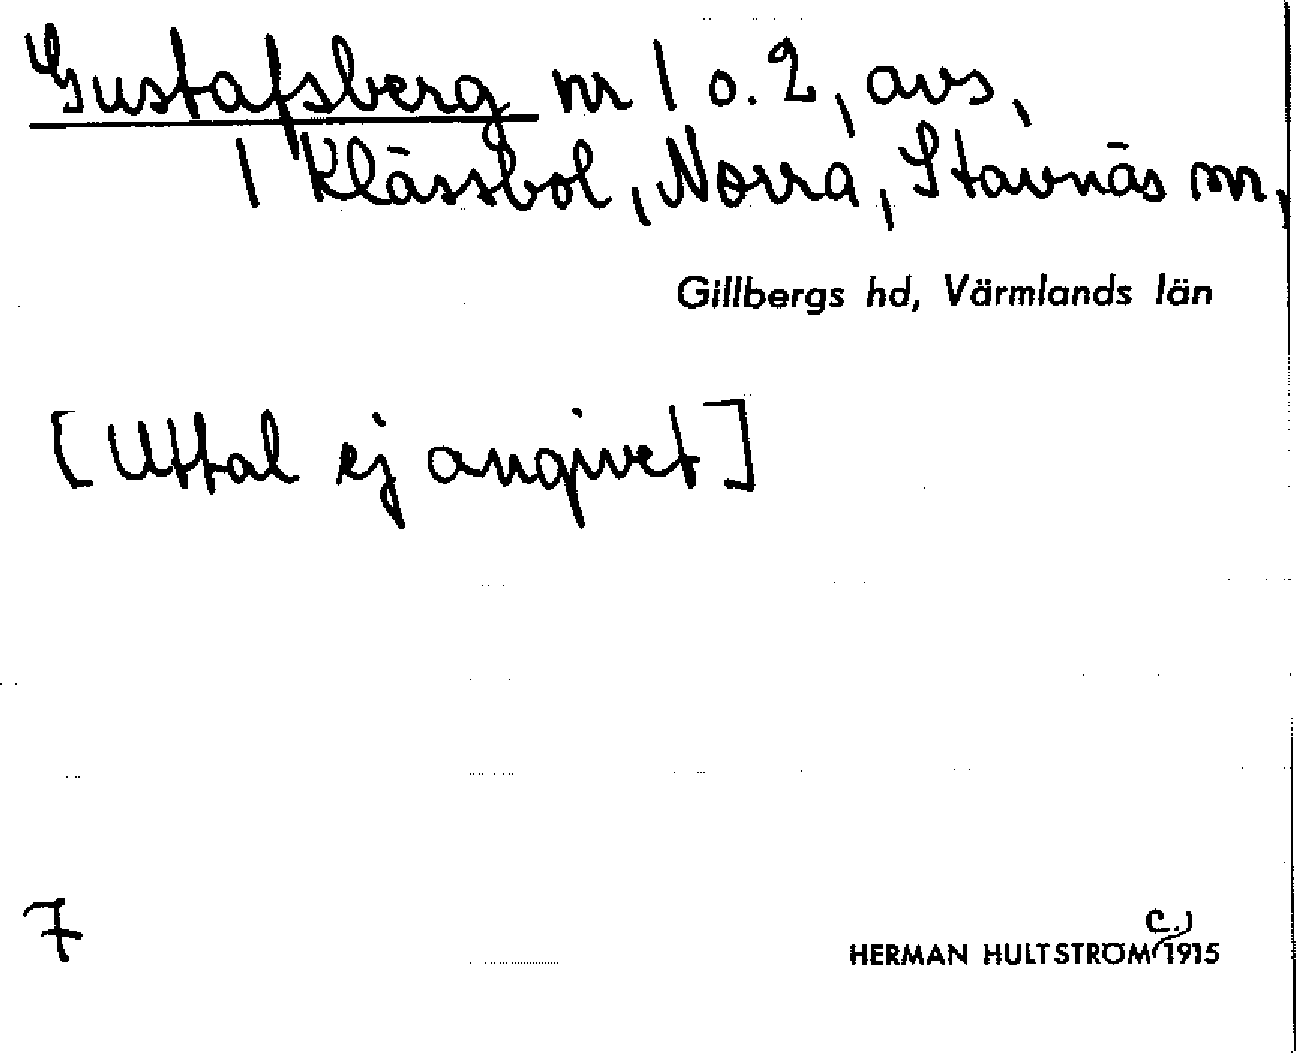 Gustafsberg nr 1 o. 2, avs,
1 Klässbol, Norra, Stavnäs sn,
Gillbergs hd, Värmlands län
[Uttal ej angivet]
7
c.)
HERMAN HULTSTRÖM 1915